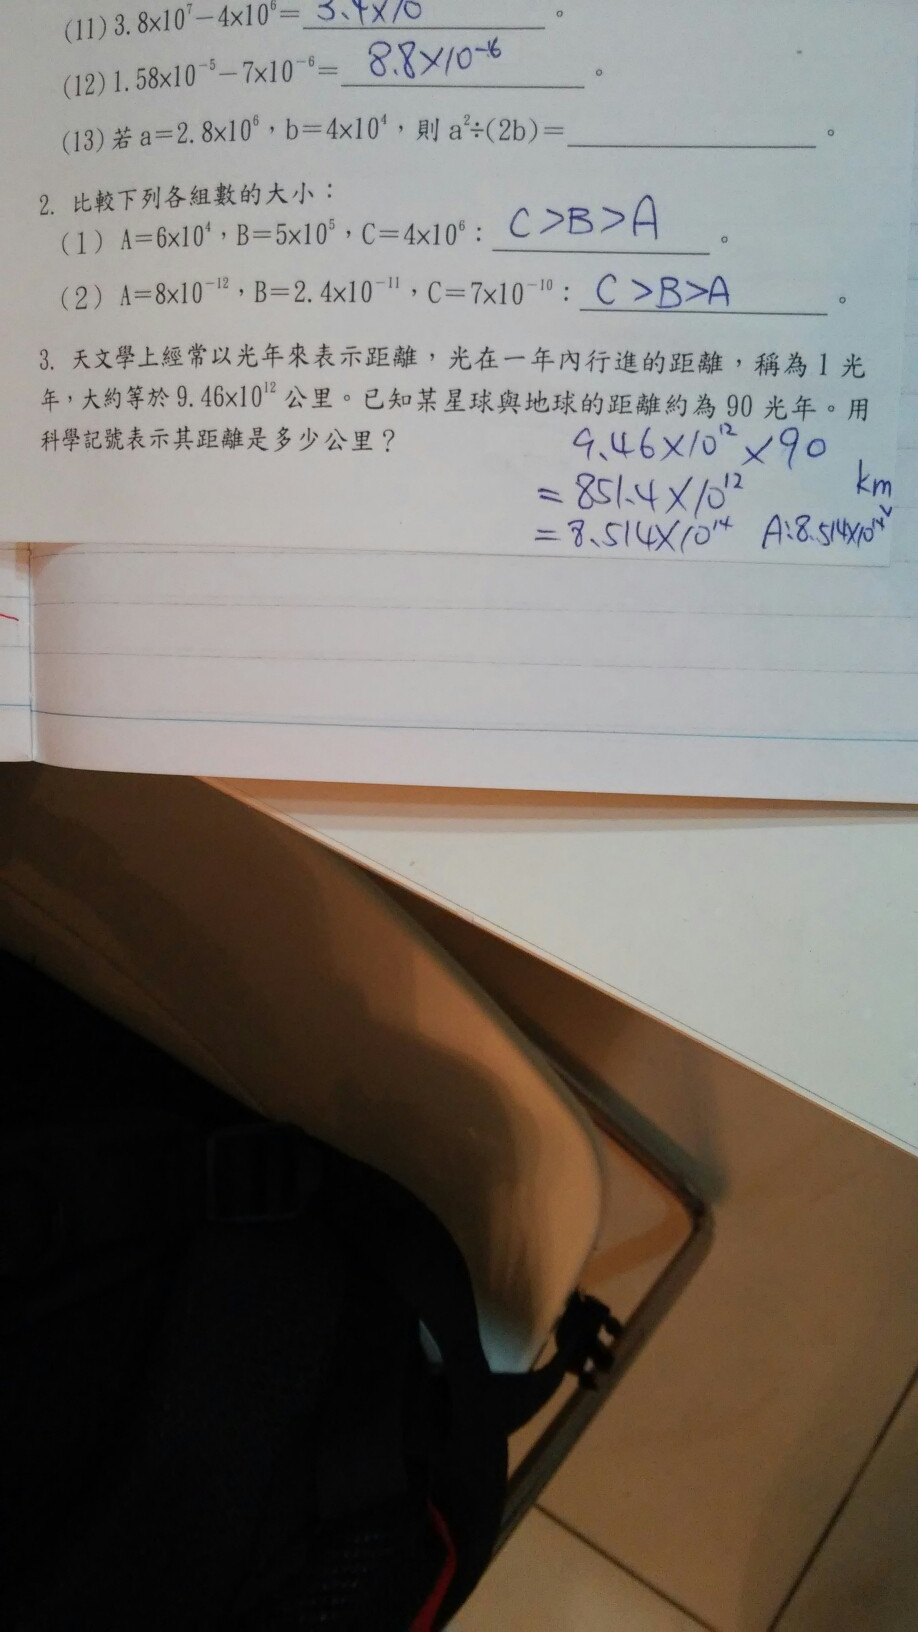 (11) 3.8x10⁷－4x10⁶＝ 3.4x10 。
(12) 1.58x10⁻⁵－7x10⁻⁶＝ 8.8x10⁻⁶ 。
(13) 若 a＝2.8x10⁶，b＝4x10⁴，則 a²÷(2b)＝ 。
2. 比較下列各組數的大小：
(1) A＝6x10⁴，B＝5x10⁵，C＝4x10⁶： C>B>A 。
(2) A＝8x10⁻¹²，B＝2.4x10⁻¹¹，C＝7x10⁻¹⁰： C>B>A 。
3. 天文學上經常以光年來表示距離，光在一年內行進的距離，稱為 1 光
年，大約等於 9.46x10¹² 公里。已知某星球與地球的距離約為 90 光年。用
科學記號表示其距離是多少公里？
9.46x10¹² x90
＝851.4x10¹²
＝8.514x10¹⁴ A:8.514x10¹⁴ km